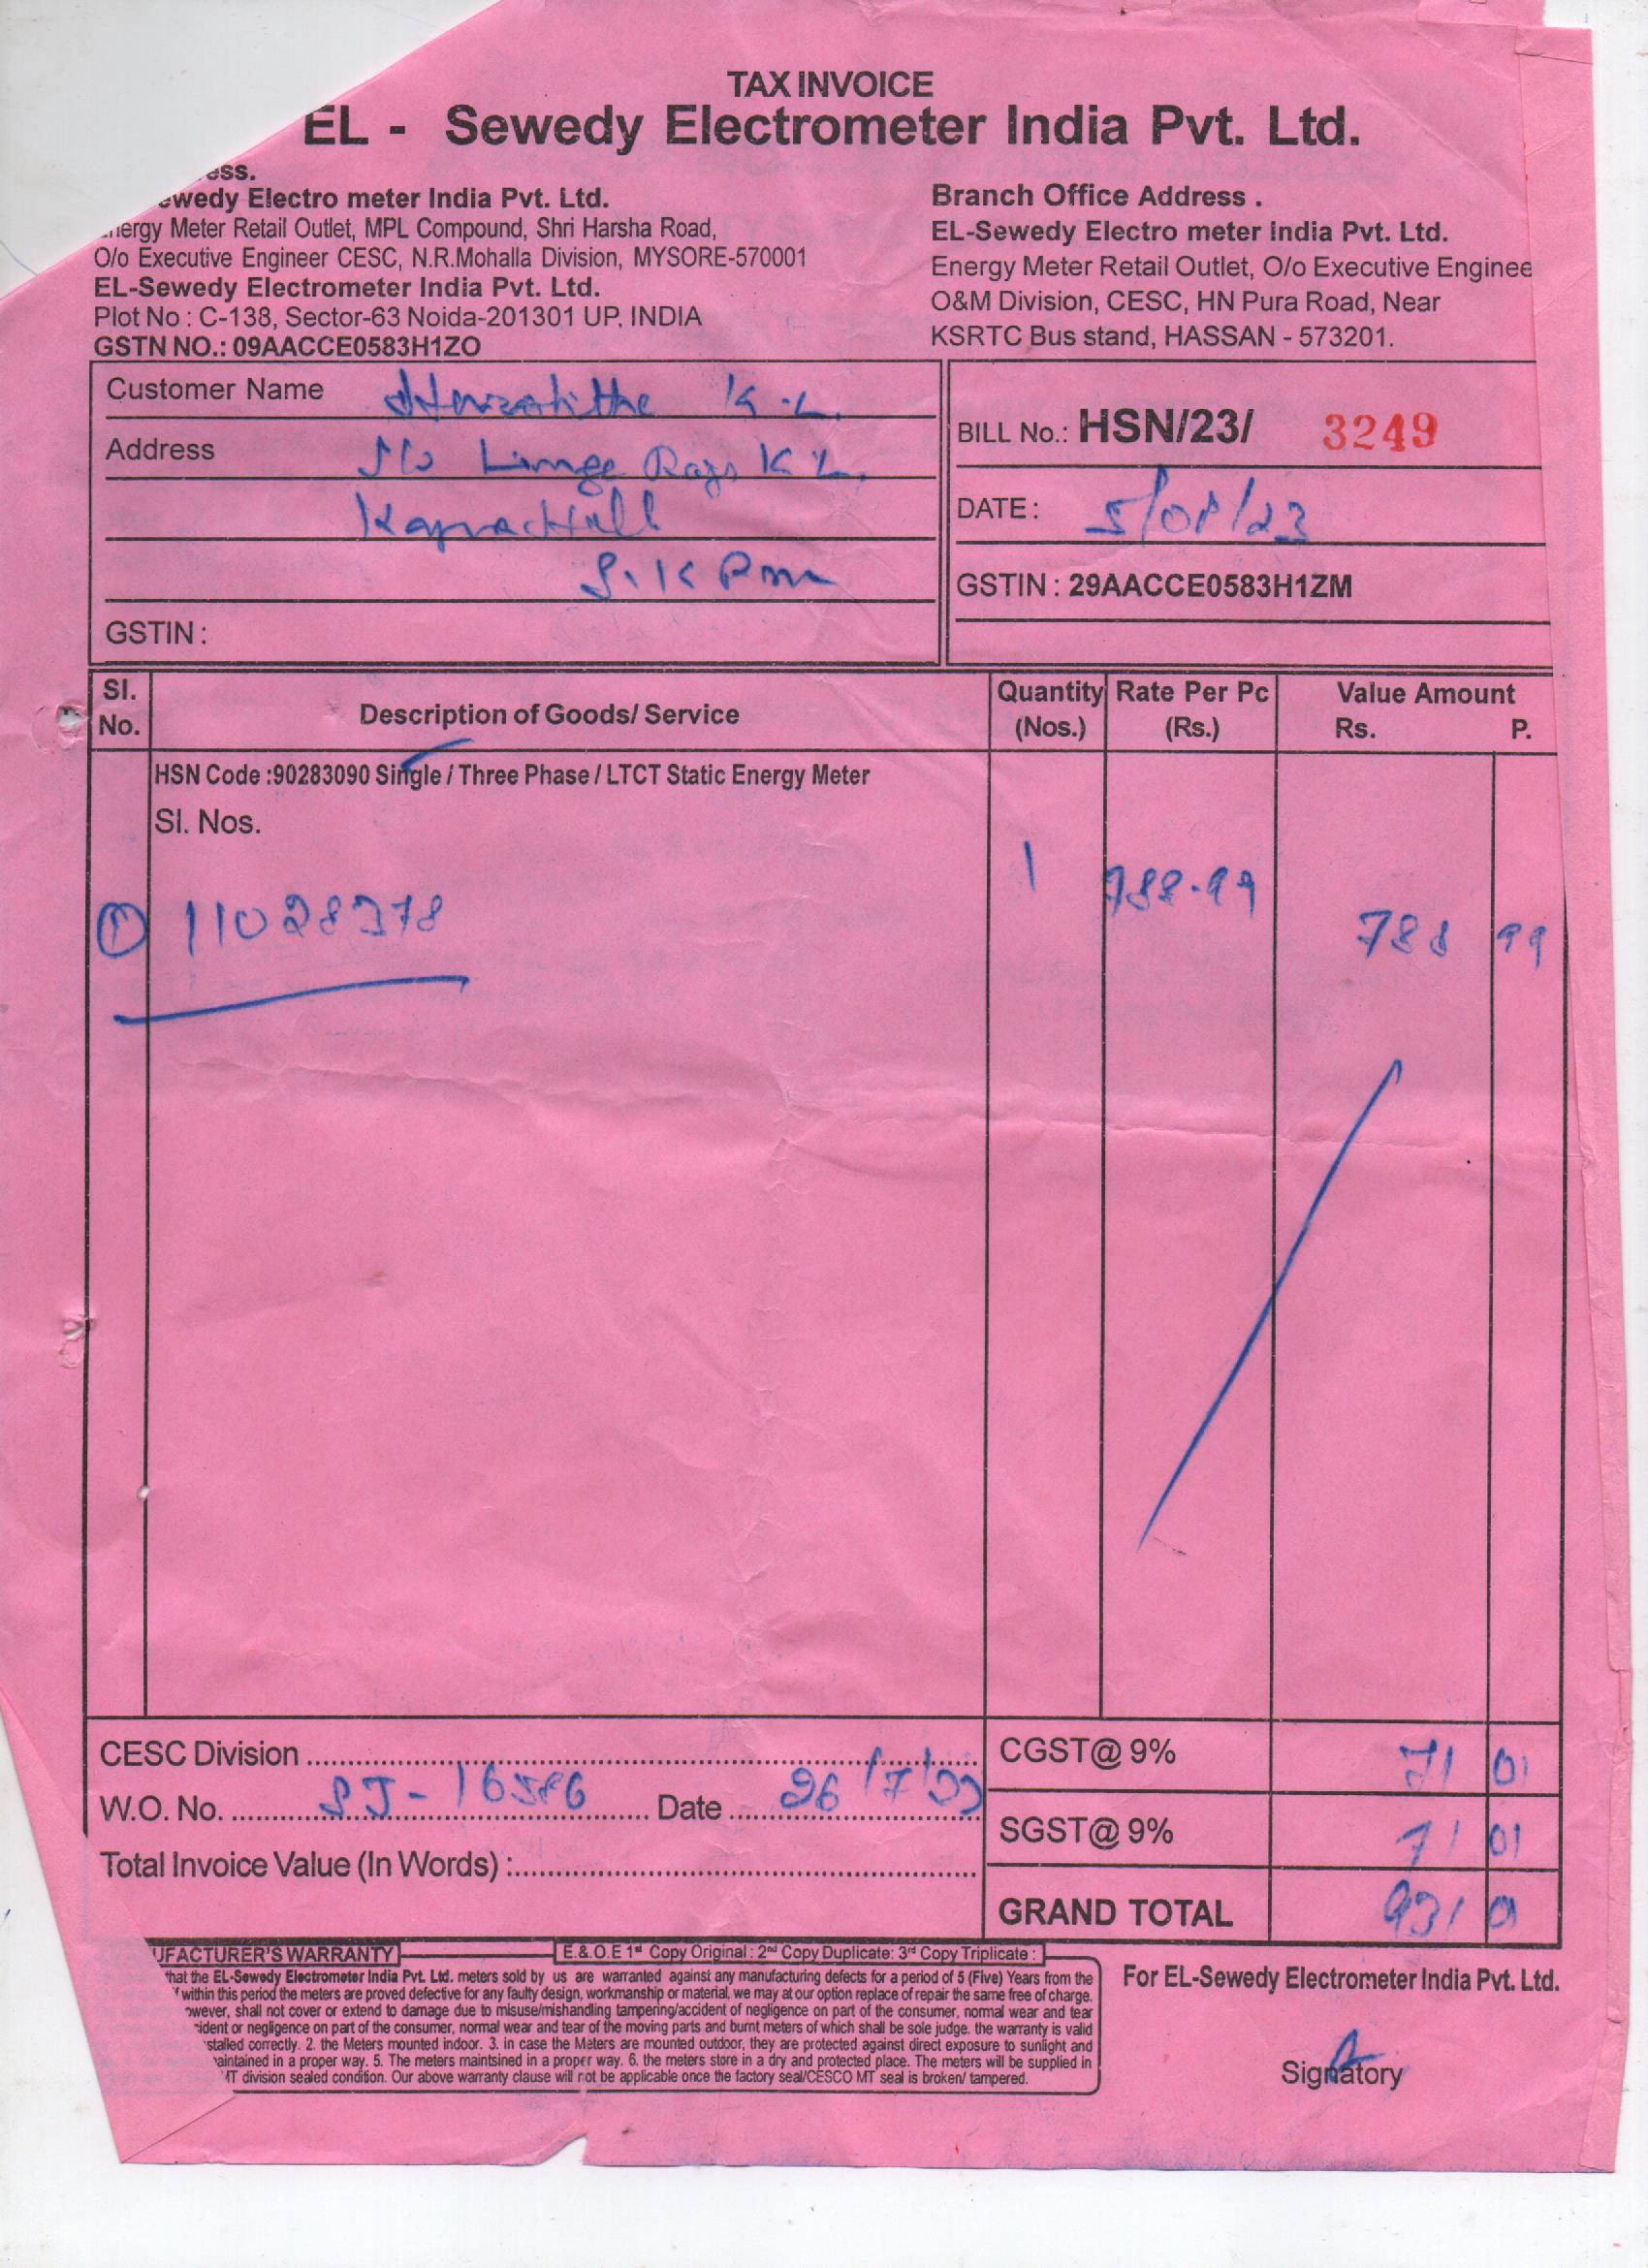 TAX INVOICE
EL - Sewedy Electrometer India Pvt. Ltd.
ess.
ewedy Electro meter India Pvt. Ltd.
nergy Meter Retail Outlet, MPL Compound, Shri Harsha Road,
O/o Executive Engineer CESC, N.R.Mohalla Division, MYSORE-570001
EL-Sewedy Electrometer India Pvt. Ltd.
Plot No : C-138, Sector-63 Noida-201301 UP. INDIA
GSTN NO.: 09AACCE0583H1ZO
Branch Office Address .
EL-Sewedy Electro meter India Pvt. Ltd.
Energy Meter Retail Outlet, O/o Executive Enginee
O&M Division, CESC, HN Pura Road, Near
KSRTC Bus stand, HASSAN - 573201.
Customer Name K.L.
Address S/o Linge Raju K L.
S.K Pura
GSTIN :
BILL No.: HSN/23/ 3249
DATE : 5/08/23
GSTIN : 29AACCE0583H1ZM
Sl. No. Description of Goods/ Service Quantity (Nos.) Rate Per Pc (Rs.) Value Amount Rs. P.
HSN Code :90283090 Single / Three Phase / LTCT Static Energy Meter
Sl. Nos.
① 11028378 1 788.99 788 99
CESC Division
W.O. No. SJ-16586 Date 26/7/23
Total Invoice Value (In Words) :
CGST@ 9% 71 01
SGST@ 9% 71 01
GRAND TOTAL 931 01
UFACTURER'S WARRANTY
E.& .O.E 1st Copy Original : 2nd Copy Duplicate: 3rd Copy Triplicate :
that the EL-Sewedy Electrometer India Pvt. Ltd. meters sold by us are warranted against any manufacturing defects for a period of 5 (Five) Years from the
f within this period the meters are proved defective for any faulty design, workmanship or material, we may at our option replace of repair the same free of charge.
owever, shall not cover or extend to damage due to misuse/mishandling tampering/accident of negligence on part of the consumer, normal wear and tear
cident or negligence on part of the consumer, normal wear and tear of the moving parts and burnt meters of which shall be sole judge. the warranty is valid
stalled correctly. 2. the Meters mounted indoor. 3. in case the Meters are mounted outdoor, they are protected against direct exposure to sunlight and
aintained in a proper way. 5. The meters maintsined in a proper way. 6. the meters store in a dry and protected place. The meters will be supplied in
MT division sealed condition. Our above warranty clause will not be applicable once the factory seal/CESCO MT seal is broken/ tampered.
For EL-Sewedy Electrometer India Pvt. Ltd.
Signatory